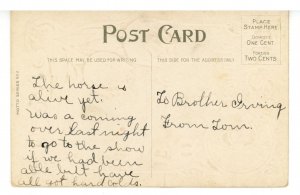 POST CARD
PLACE
STAMP HERE
DOMESTIC
ONE CENT
FOREIGN
TWO CENTS
THIS SPACE MAY BE USED FOR WRITING
THIS SIDE FOR THE ADDRESS
The horse is
alive yet.
Was a coming
over last night
to go to the show
if we had been
able but have
all got hard col ds.
To Brother Irving
From Tom.
MOTTO SERIES